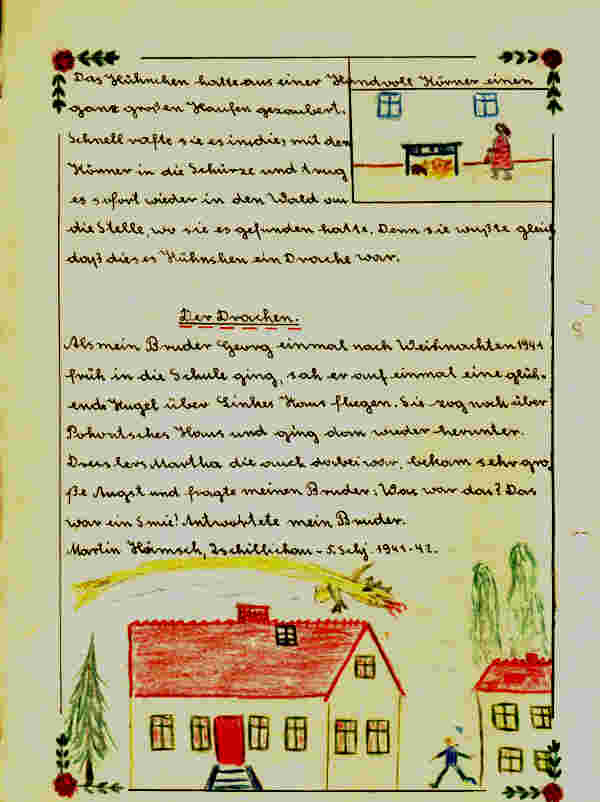 Das Hühnchen hatte aus einer Handvoll Körner einen
ganz großen Haufen gezaubert.
Schnell rafte sie es in dies mit den
Körner in die Schürze und trug
es sofort wieder in den Wald an
die Stelle, wo sie es gefunden hatte. Denn sie wußte gleich
daß dies es Hühnchen ein Drache war.
Der Drachen.
Als mein Bruder Georg einmal nach Weihnachten 1941
früh in die Schule ging, sah er auf einmal eine glüh-
ende Kugel über Linkes Haus fliegen. Sie zog noch über
Haus und ging dan wieder herunter.
Martha die auch dabei war, bekam sehr gro-
ße Angst und fragte meinen Bruder: Was war das? Das
war ein Antwohtete mein Bruder.
Martin 5. Schj. 1941-42.